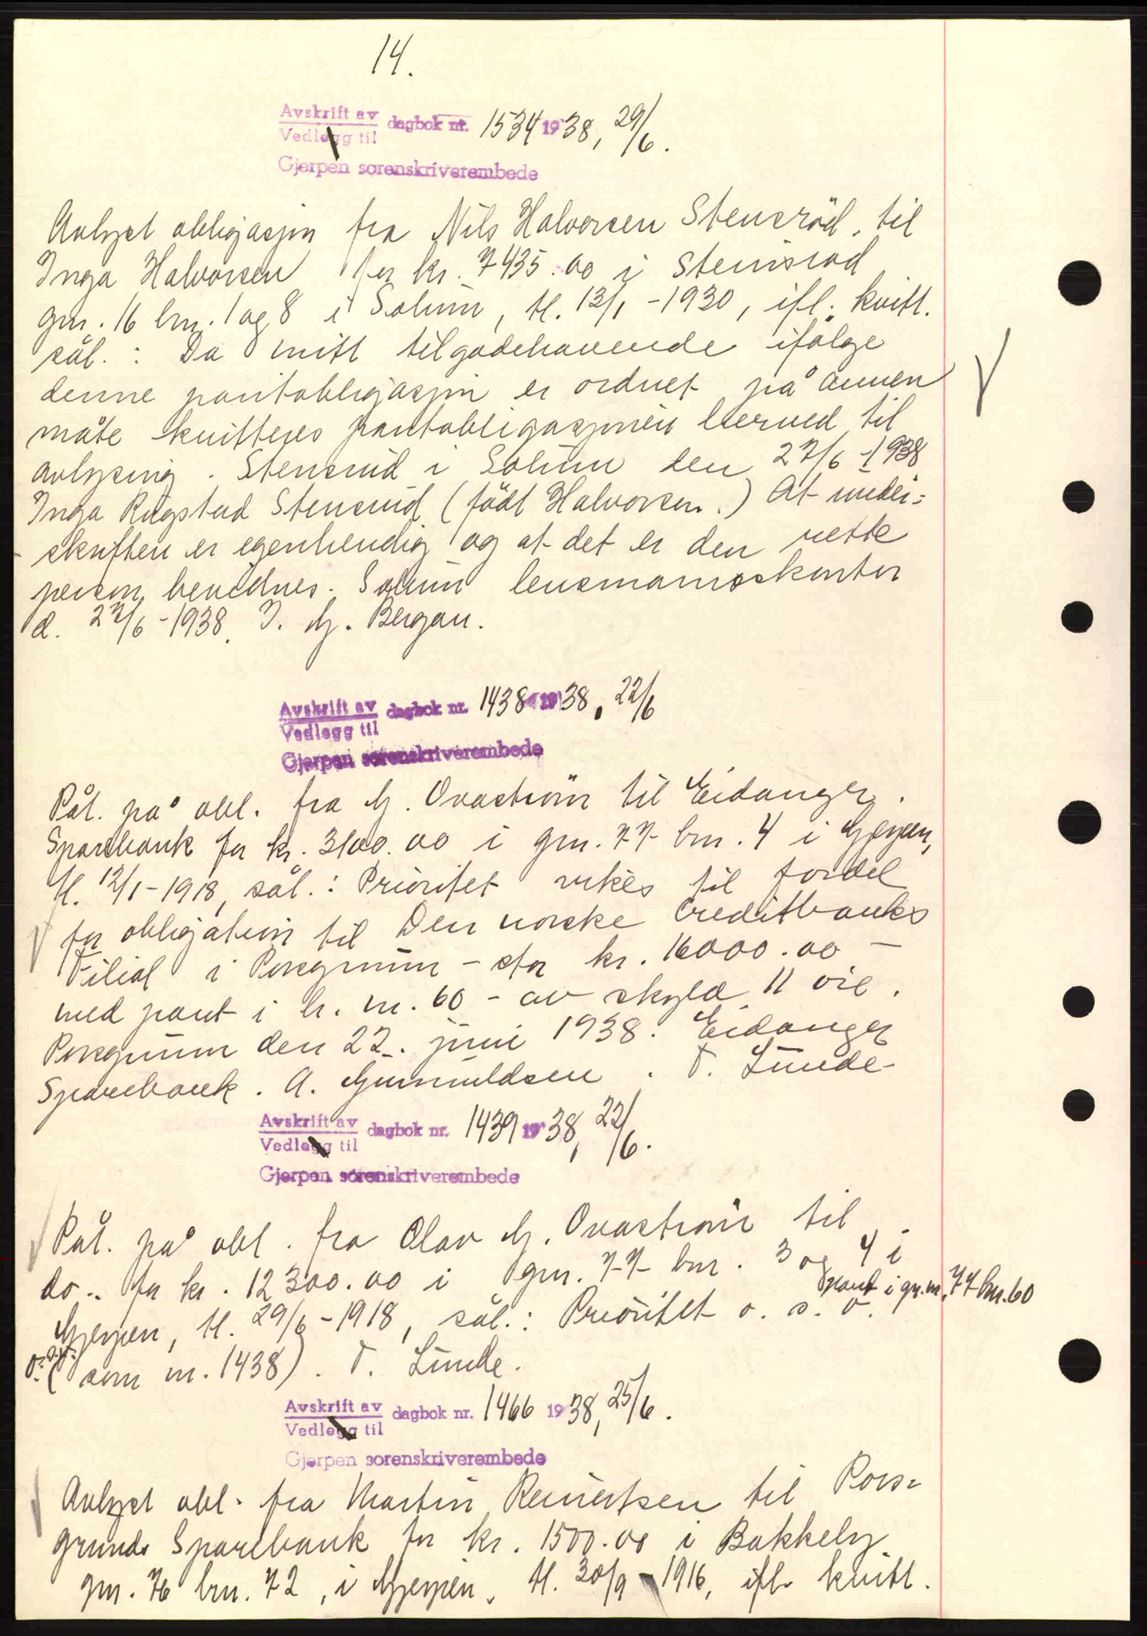 14.
Avskrift av
Vedlegg til
dagbok nr. 1534 1938, 29/6.
Gjerpen sorenskriverembede
Avlyst obligasjon fra Nils Halvorsen Stensröd til
Inga Halvorsen for kr. 7435.00 i Stensrød
gnr. 16 bnr. 1 og 8 i Solum, tl. 13/1-1930, ifl. kvitt.
sål.: Da mitt tilgodehavende ifølge
denne pantobligasjon er ordnet på annen
måte kvitteres pantobligasjonen herved til
avlysing. Stensrud i Solum den 27/6-1938
Inga Rugstad Stensrud (født Halvorsen.) At under=
skriften er egenhendig og at det er den rette
person bevidnes. Solum lensmannskontor
d. 27/6-1938. I. G. Bergan.
Avskrift av
Vedlegg til
dagbok nr. 1438 1938, 22/6
Gjerpen sorenskriverembede
Påt. på obl. fra G. Ovastrøm til Eidanger
Sparebank for kr. 3100.00 i gnr. 77 bnr. 4 i Gjerpen,
tl. 12/1-1918, sål.: Prioritet vikes til fordel
for obligation til Den norske Creditbanks
Filial i Porsgrunn - stor kr. 16000.00 -
med pant i br. nr. 60 - av skyld 11 øre.
Porsgrunn den 22. juni 1938. Eidanger
Sparebank. A. Gunnuldsen. T. Lunde
Avskrift av
Vedlegg til
dagbok nr. 1439 1938, 22/6.
Gjerpen sorenskriverembede
Påt. på obl. fra Olav G. Ovastrøm til
do.. for kr. 12300.00 i gnr. 77 bnr. 3 og 4 i
pant i gr. nr. 77 bnr. 60
Gjerpen, tl. 29/6-1918, sål.: Prioritet o. s. v.
(som nr. 1438). T. Lunde.
Avskrift av
Vedlegg til
dagbok nr. 1466 1938, 25/6.
Gjerpen sorenskriverembede
Avlyst obl. fra Martin Reinertsen til Pors=
grunds Sparebank for kr. 1500.00 i Bakkeby
gnr. 76 bnr. 72, i Gjerpen, tl. 30/9-1916, ifl. kvitt.